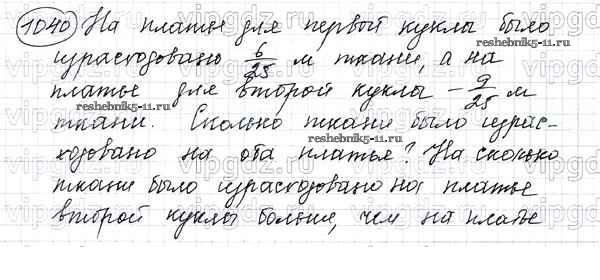 1040 На платье для первой куклы было
израсходовано 6/25 м ткани, а на
платье для второй куклы - 9/25 м
ткани. Сколько ткани было израс-
ходовано на оба платья? На сколько
ткани было израсходовано на платье
второй куклы больше, чем на платье
reshebnik5-11.ru
reshebnik5-11.ru
reshebnik5-11.ru
vipgdz.ru